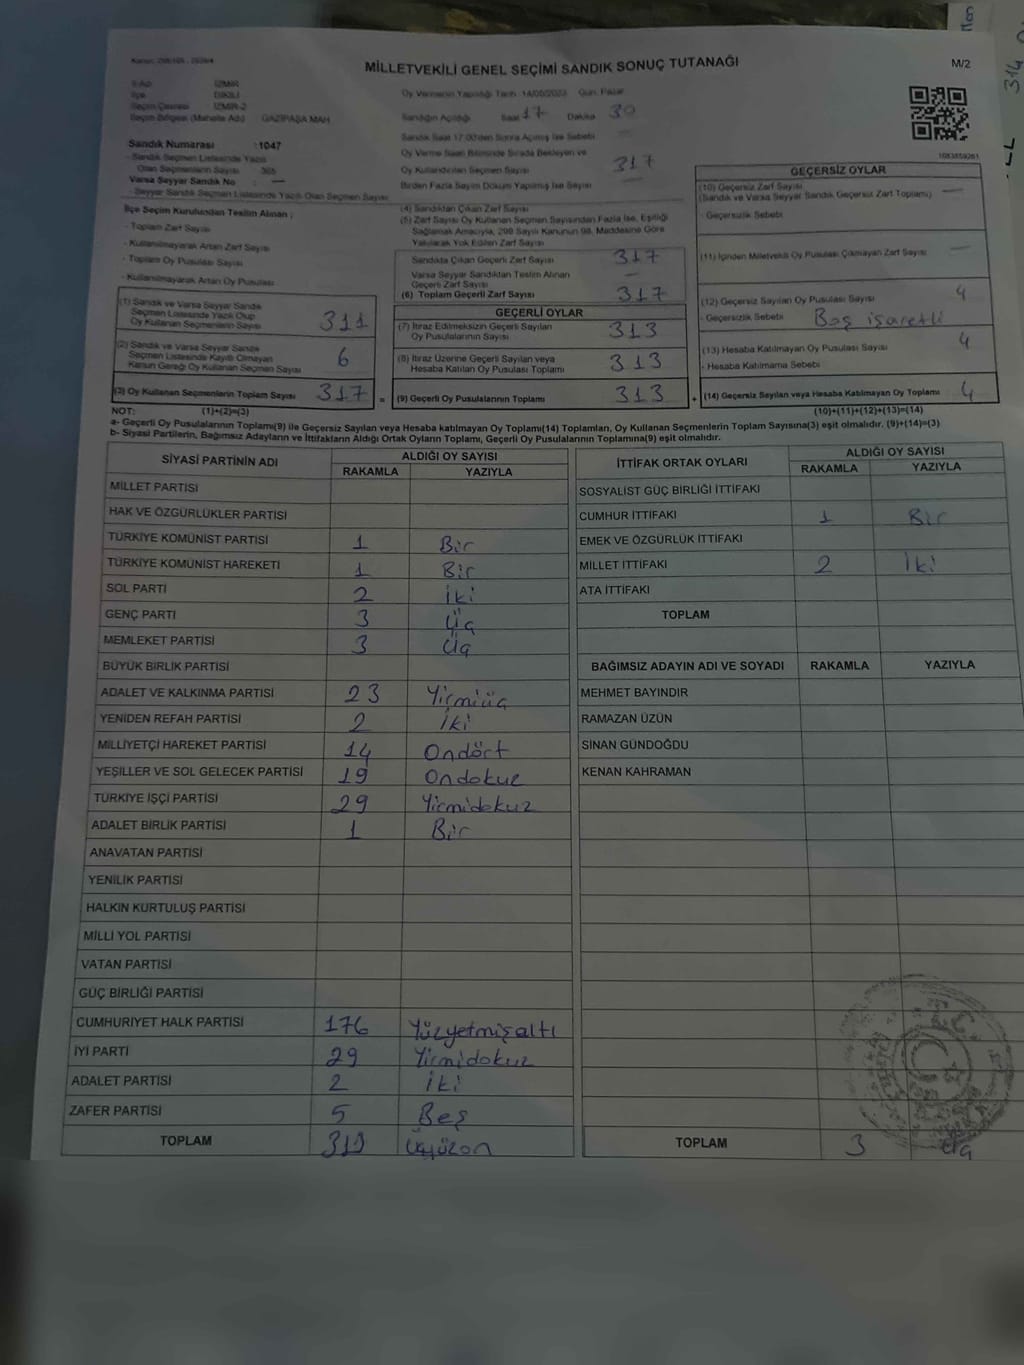 MİLLETVEKİLİ GENEL SEÇİMİ SANDIK SONUÇ TUTANAĞI
M/2
İZMİR
DİKİLİ
Seçim Çevresi İZMİR-2
Seçim Bölgesi (Mahalle Adı) GAZİPAŞA MAH
Oy Vermenin Yapıldığı Tarih 14/05/2023 Gün Pazar
Sandığın Açıldığı Saat 17 Dakika 30
Sandık Saat 17:00'den Sonra Açılmış İse Sebebi
Oy Verme Saati Bitiminde Sırada Bekleyen ve
Oy Kullandırılan Seçmen Sayısı 317
Birden Fazla Sayım Döküm Yapılmış İse Sayısı
Sandık Numarası :1047
- Sandık Seçmen Listesinde Yazılı
Olan Seçmenlerin Sayısı 365
Varsa Seyyar Sandık No : —
- Seyyar Sandık Seçmen Listesinde Yazılı Olan Seçmen Sayısı
İlçe Seçim Kurulundan Teslim Alınan ;
- Toplam Zarf Sayısı
- Kullanılmayarak Artan Zarf Sayısı
- Toplam Oy Pusulası Sayısı
- Kullanılmayarak Artan Oy Pusulası
(1) Sandık ve Varsa Seyyar Sandık
Seçmen Listesinde Yazılı Olup
Oy Kullanan Seçmenlerin Sayısı 311
(2) Sandık ve Varsa Seyyar Sandık
Seçmen Listesinde Kayıtlı Olmayan
Kanun Gereği Oy Kullanan Seçmen Sayısı 6
(3) Oy Kullanan Seçmenlerin Toplam Sayısı 317 =
(4) Sandıktan Çıkan Zarf Sayısı
(5) Zarf Sayısı Oy Kullanan Seçmen Sayısından Fazla İse, Eşitliği
Sağlamak Amacıyla, 298 Sayılı Kanunun 98. Maddesine Göre
Yakılarak Yok Edilen Zarf Sayısı
Sandıkta Çıkan Geçerli Zarf Sayısı 317
Varsa Seyyar Sandıktan Teslim Alınan
Geçerli Zarf Sayısı —
(6) Toplam Geçerli Zarf Sayısı 317
GEÇERLİ OYLAR
(7) İtiraz Edilmeksizin Geçerli Sayılan
Oy Pusulalarının Sayısı 313
(8) İtiraz Üzerine Geçerli Sayılan veya
Hesaba Katılan Oy Pusulası Toplamı 313
(9) Geçerli Oy Pusulalarının Toplamı 313 +
1083859261
GEÇERSİZ OYLAR
(10) Geçersiz Zarf Sayısı —
(Sandık ve Varsa Seyyar Sandık Geçersiz Zarf Toplamı)
- Geçersizlik Sebebi
(11) İçinden Milletvekili Oy Pusulası Çıkmayan Zarf Sayısı —
(12) Geçersiz Sayılan Oy Pusulası Sayısı 4
- Geçersizlik Sebebi Boş işaretli
(13) Hesaba Katılmayan Oy Pusulası Sayısı 4
- Hesaba Katılmama Sebebi
(14) Geçersiz Sayılan veya Hesaba Katılmayan Oy Toplamı 4
NOT: (1)+(2)=(3) (10)+(11)+(12)+(13)=(14)
a- Geçerli Oy Pusulalarının Toplamı(9) ile Geçersiz Sayılan veya Hesaba katılmayan Oy Toplamı(14) Toplamları, Oy Kullanan Seçmenlerin Toplam Sayısına(3) eşit olmalıdır. (9)+(14)=(3)
b- Siyasi Partilerin, Bağımsız Adayların ve İttifakların Aldığı Ortak Oyların Toplamı, Geçerli Oy Pusulalarının Toplamına(9) eşit olmalıdır.
SİYASİ PARTİNİN ADI ALDIĞI OY SAYISI
RAKAMLA YAZIYLA
MİLLET PARTİSİ
HAK VE ÖZGÜRLÜKLER PARTİSİ
TÜRKİYE KOMÜNİST PARTİSİ 1 Bir
TÜRKİYE KOMÜNİST HAREKETİ 1 Bir
SOL PARTİ 2 İki
GENÇ PARTİ 3 Üç
MEMLEKET PARTİSİ 3 Üç
BÜYÜK BİRLİK PARTİSİ
ADALET VE KALKINMA PARTİSİ 23 Yirmiüç
YENİDEN REFAH PARTİSİ 2 İki
MİLLİYETÇİ HAREKET PARTİSİ 14 Ondört
YEŞİLLER VE SOL GELECEK PARTİSİ 19 Ondokuz
TÜRKİYE İŞÇİ PARTİSİ 29 Yirmidokuz
ADALET BİRLİK PARTİSİ 1 Bir
ANAVATAN PARTİSİ
YENİLİK PARTİSİ
HALKIN KURTULUŞ PARTİSİ
MİLLİ YOL PARTİSİ
VATAN PARTİSİ
GÜÇ BİRLİĞİ PARTİSİ
CUMHURİYET HALK PARTİSİ 176 Yüzyetmişaltı
İYİ PARTİ 29 Yirmidokuz
ADALET PARTİSİ 2 İki
ZAFER PARTİSİ 5 Beş
TOPLAM 310 Üçyüzon
İTTİFAK ORTAK OYLARI ALDIĞI OY SAYISI
RAKAMLA YAZIYLA
SOSYALİST GÜÇ BİRLİĞİ İTTİFAKI
CUMHUR İTTİFAKI 1 Bir
EMEK VE ÖZGÜRLÜK İTTİFAKI
MİLLET İTTİFAKI 2 İki
ATA İTTİFAKI
TOPLAM
BAĞIMSIZ ADAYIN ADI VE SOYADI RAKAMLA YAZIYLA
MEHMET BAYINDIR
RAMAZAN ÜZÜN
SİNAN GÜNDOĞDU
KENAN KAHRAMAN
TOPLAM 3 Üç
314